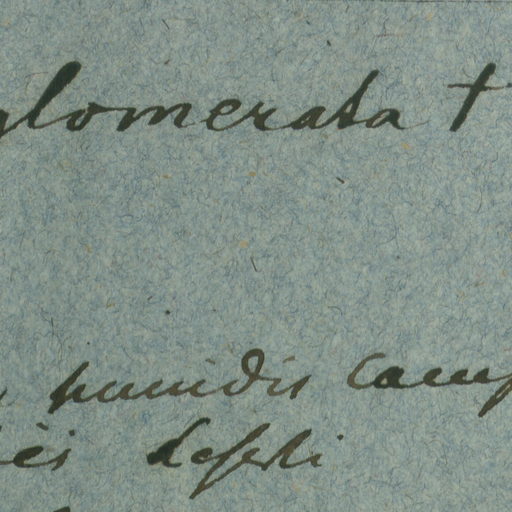 glomerata †
humidis camp
deserti